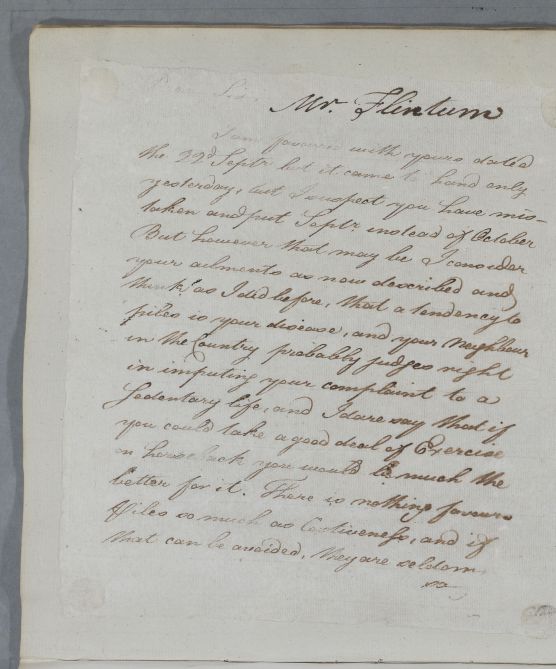 Dear Sir,
Mr. Flintum
I am favoured with yours dated
the 22d Septr. but it came to hand only
yesterday, but I suspect you have mis-
taken and put Septr. instead of October
But however that may be I consider
your ailments as now described and
think as I did before, that a tendency to
piles is your disease, and your Neighbour
in the Country probably judges right
in imputing your complaint to a
Sedentary life, and I dare say that if
you could take a good deal of Exercise
on horseback you would be much the
better for it. There is nothing favours
Piles so much as Costiveness, and if
that can be avoided, they are seldom
so